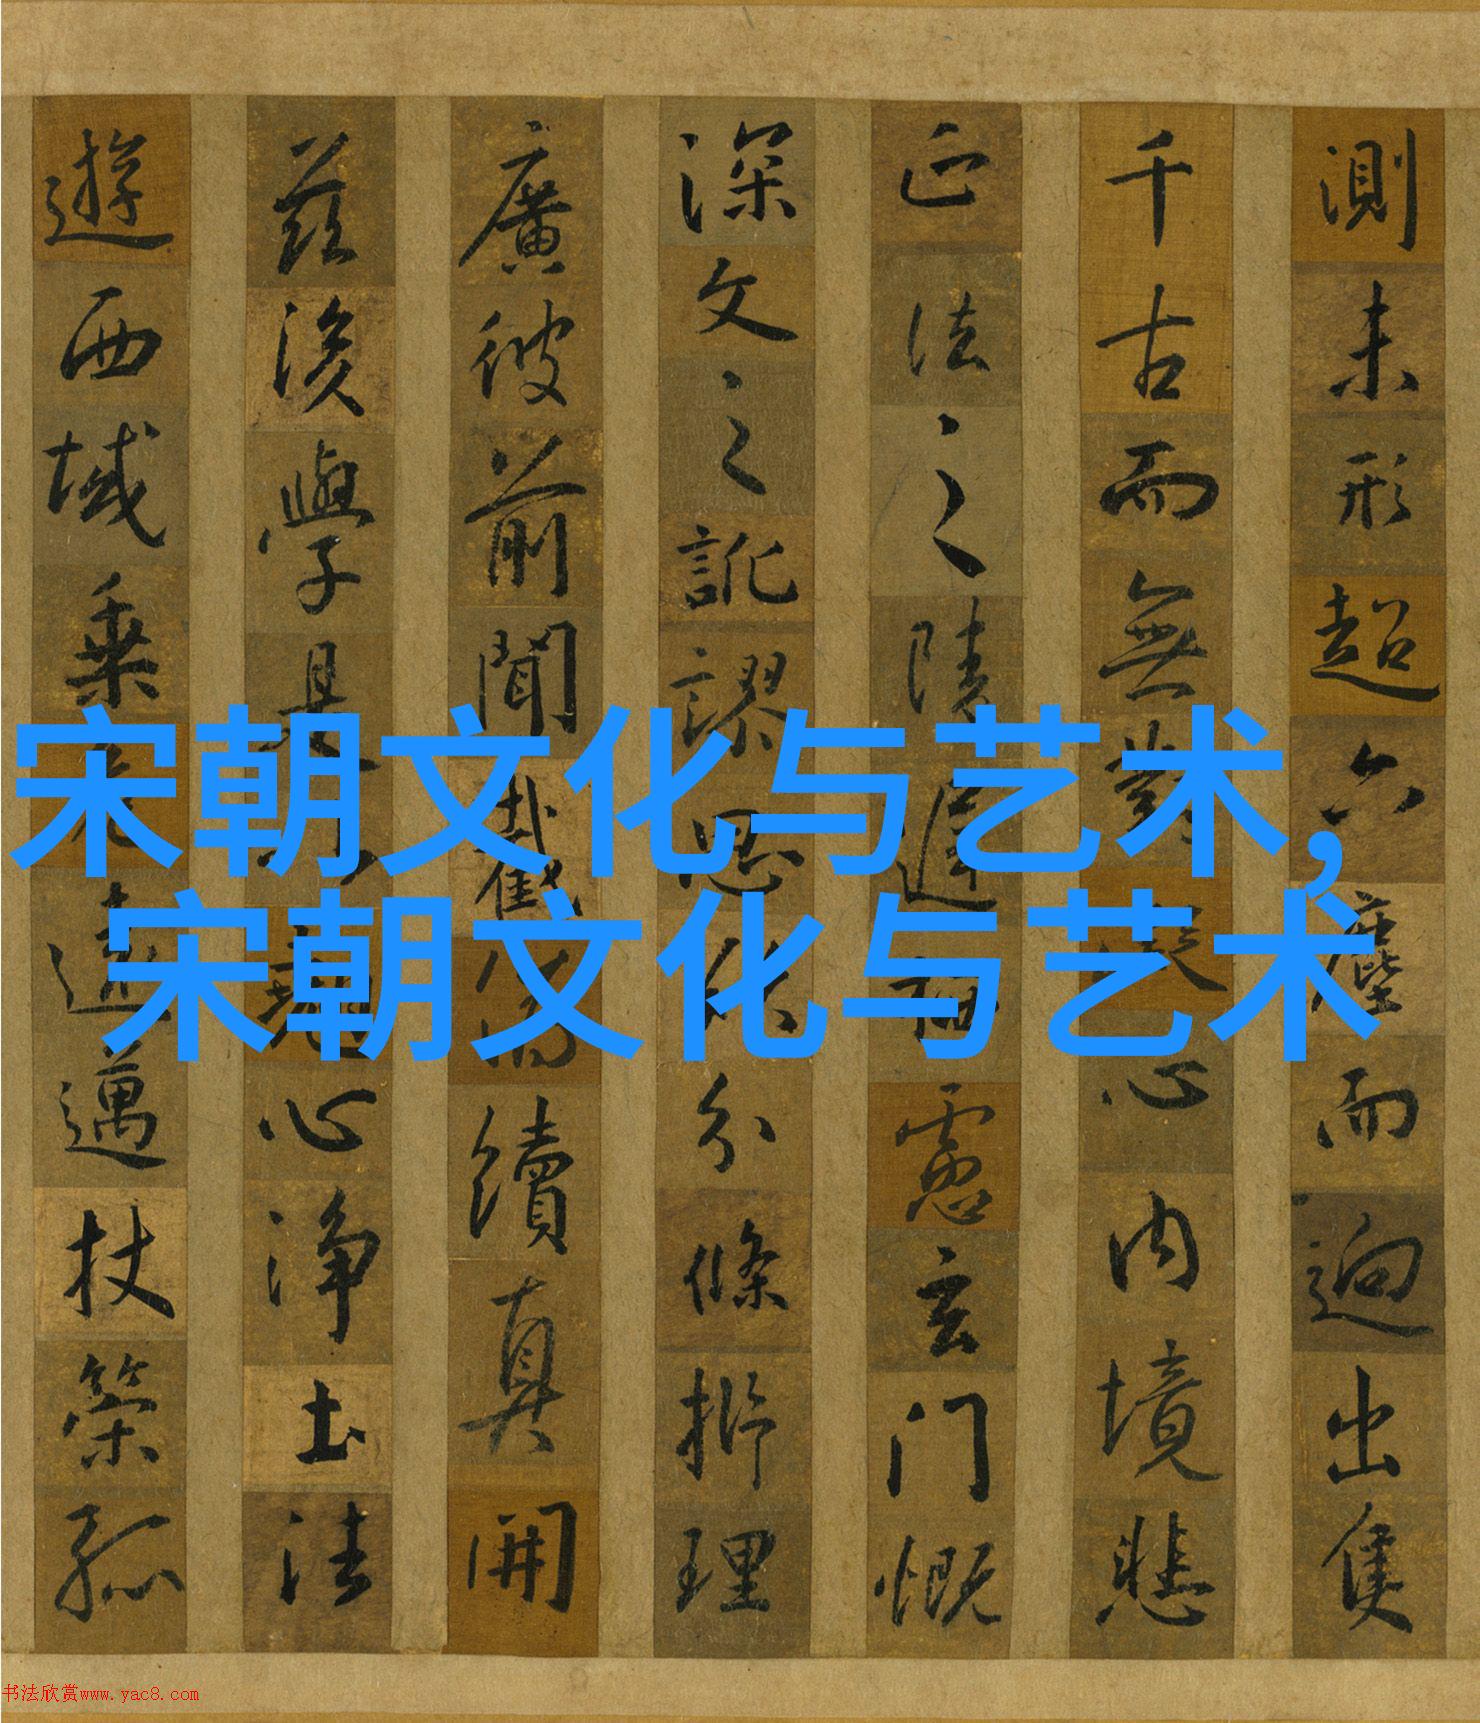 測未形超六塵而迥出隻
千古而無對心內境悲
正法之陵遲慮玄門慨
深文之訛謬思分條析理
廣彼前聞截續真開
茲後學是心淨土法
遊西域乘遠邁杖策孤
宋朝文化与艺术,
宋朝文化与艺术
书法欣赏www.yac8.com